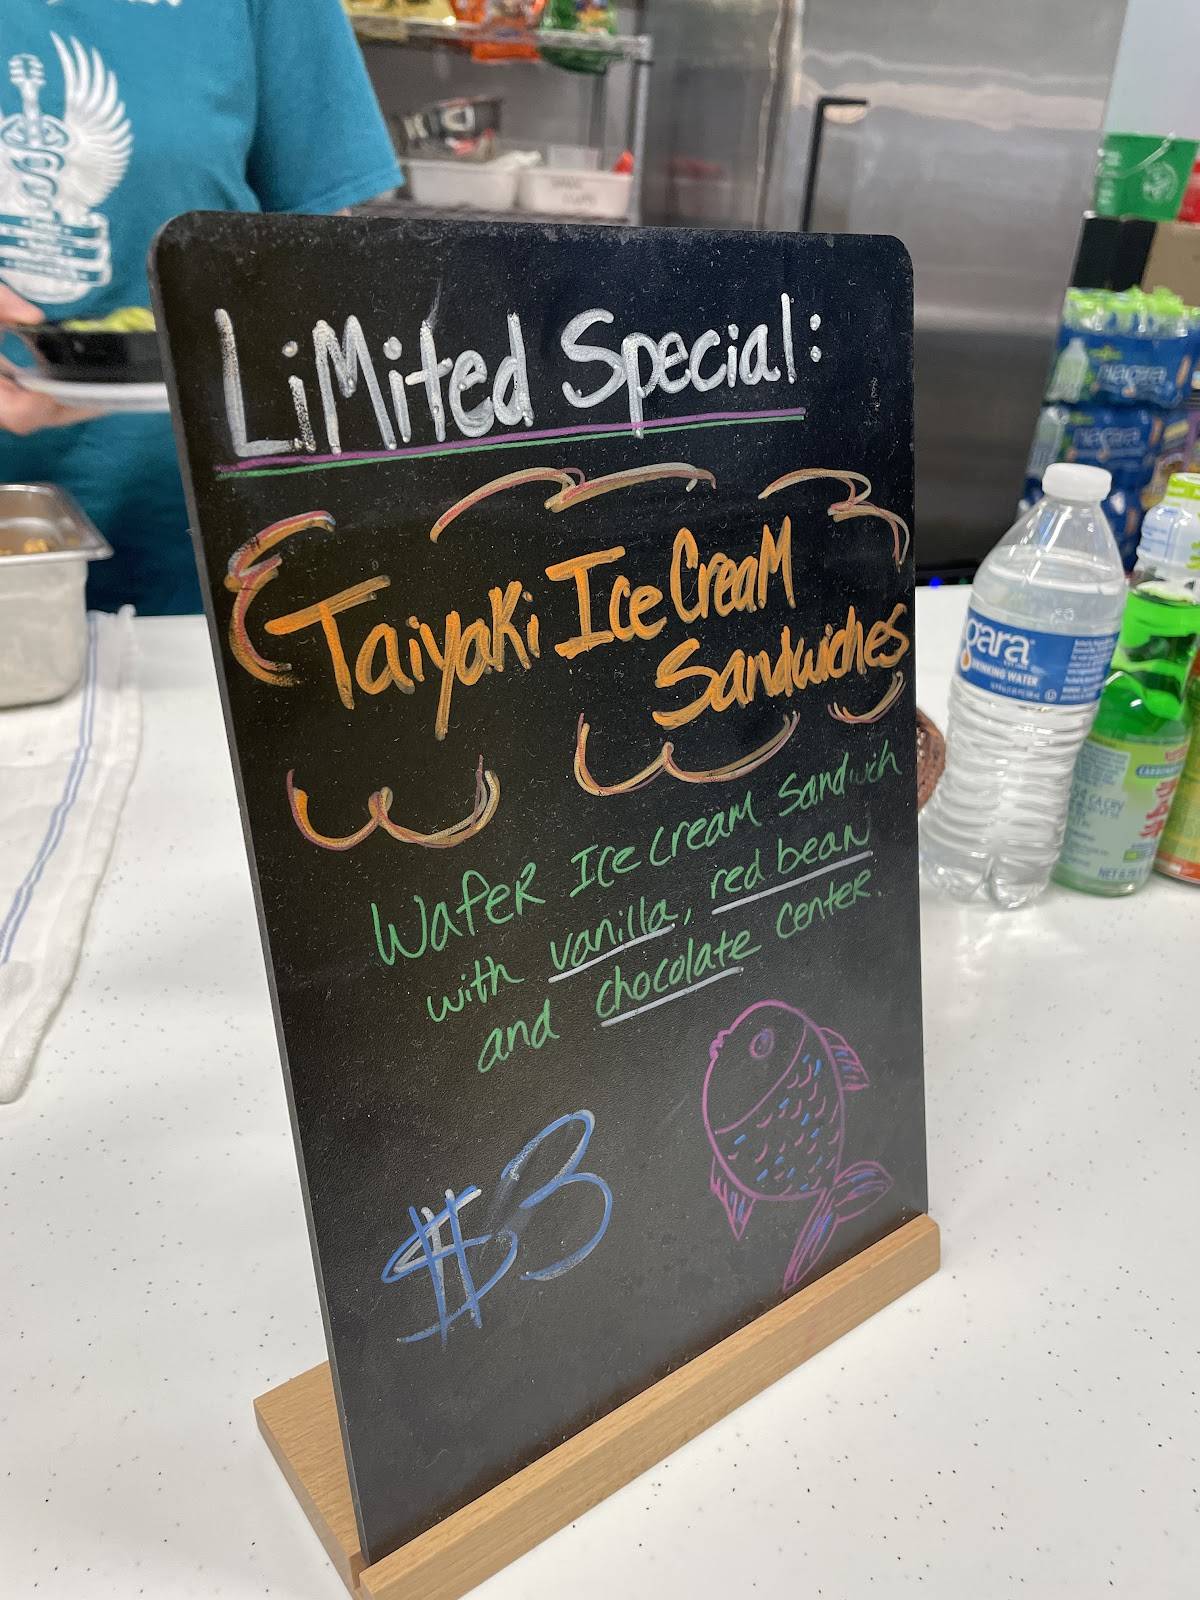 LiMited Special:
Taiyaki Ice CreaM
Sandwiches
Wafer Ice creaM Sandwich
with vanilla, red bean
and chocolate center.
$3
niagara
niagara
gara
DRINKING WATER